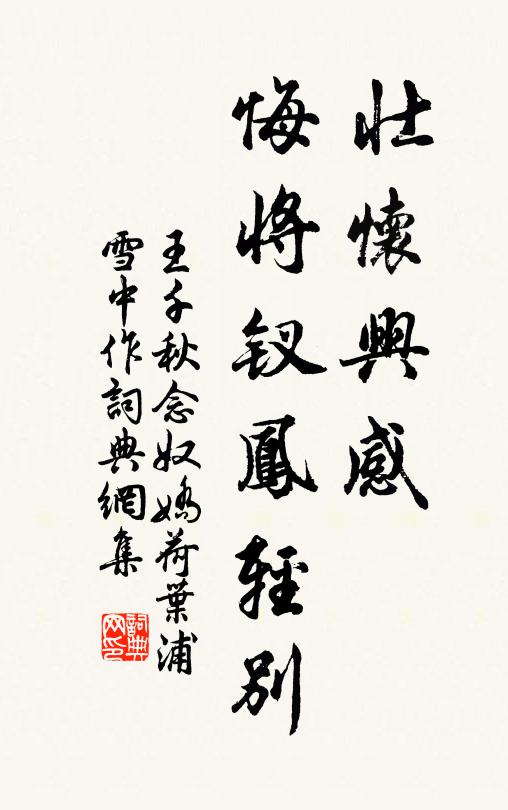 壯懷興感
悔將釵鳳輕別
王千秋念奴嬌荷葉浦
雪中作詞典網集
詞典
网印